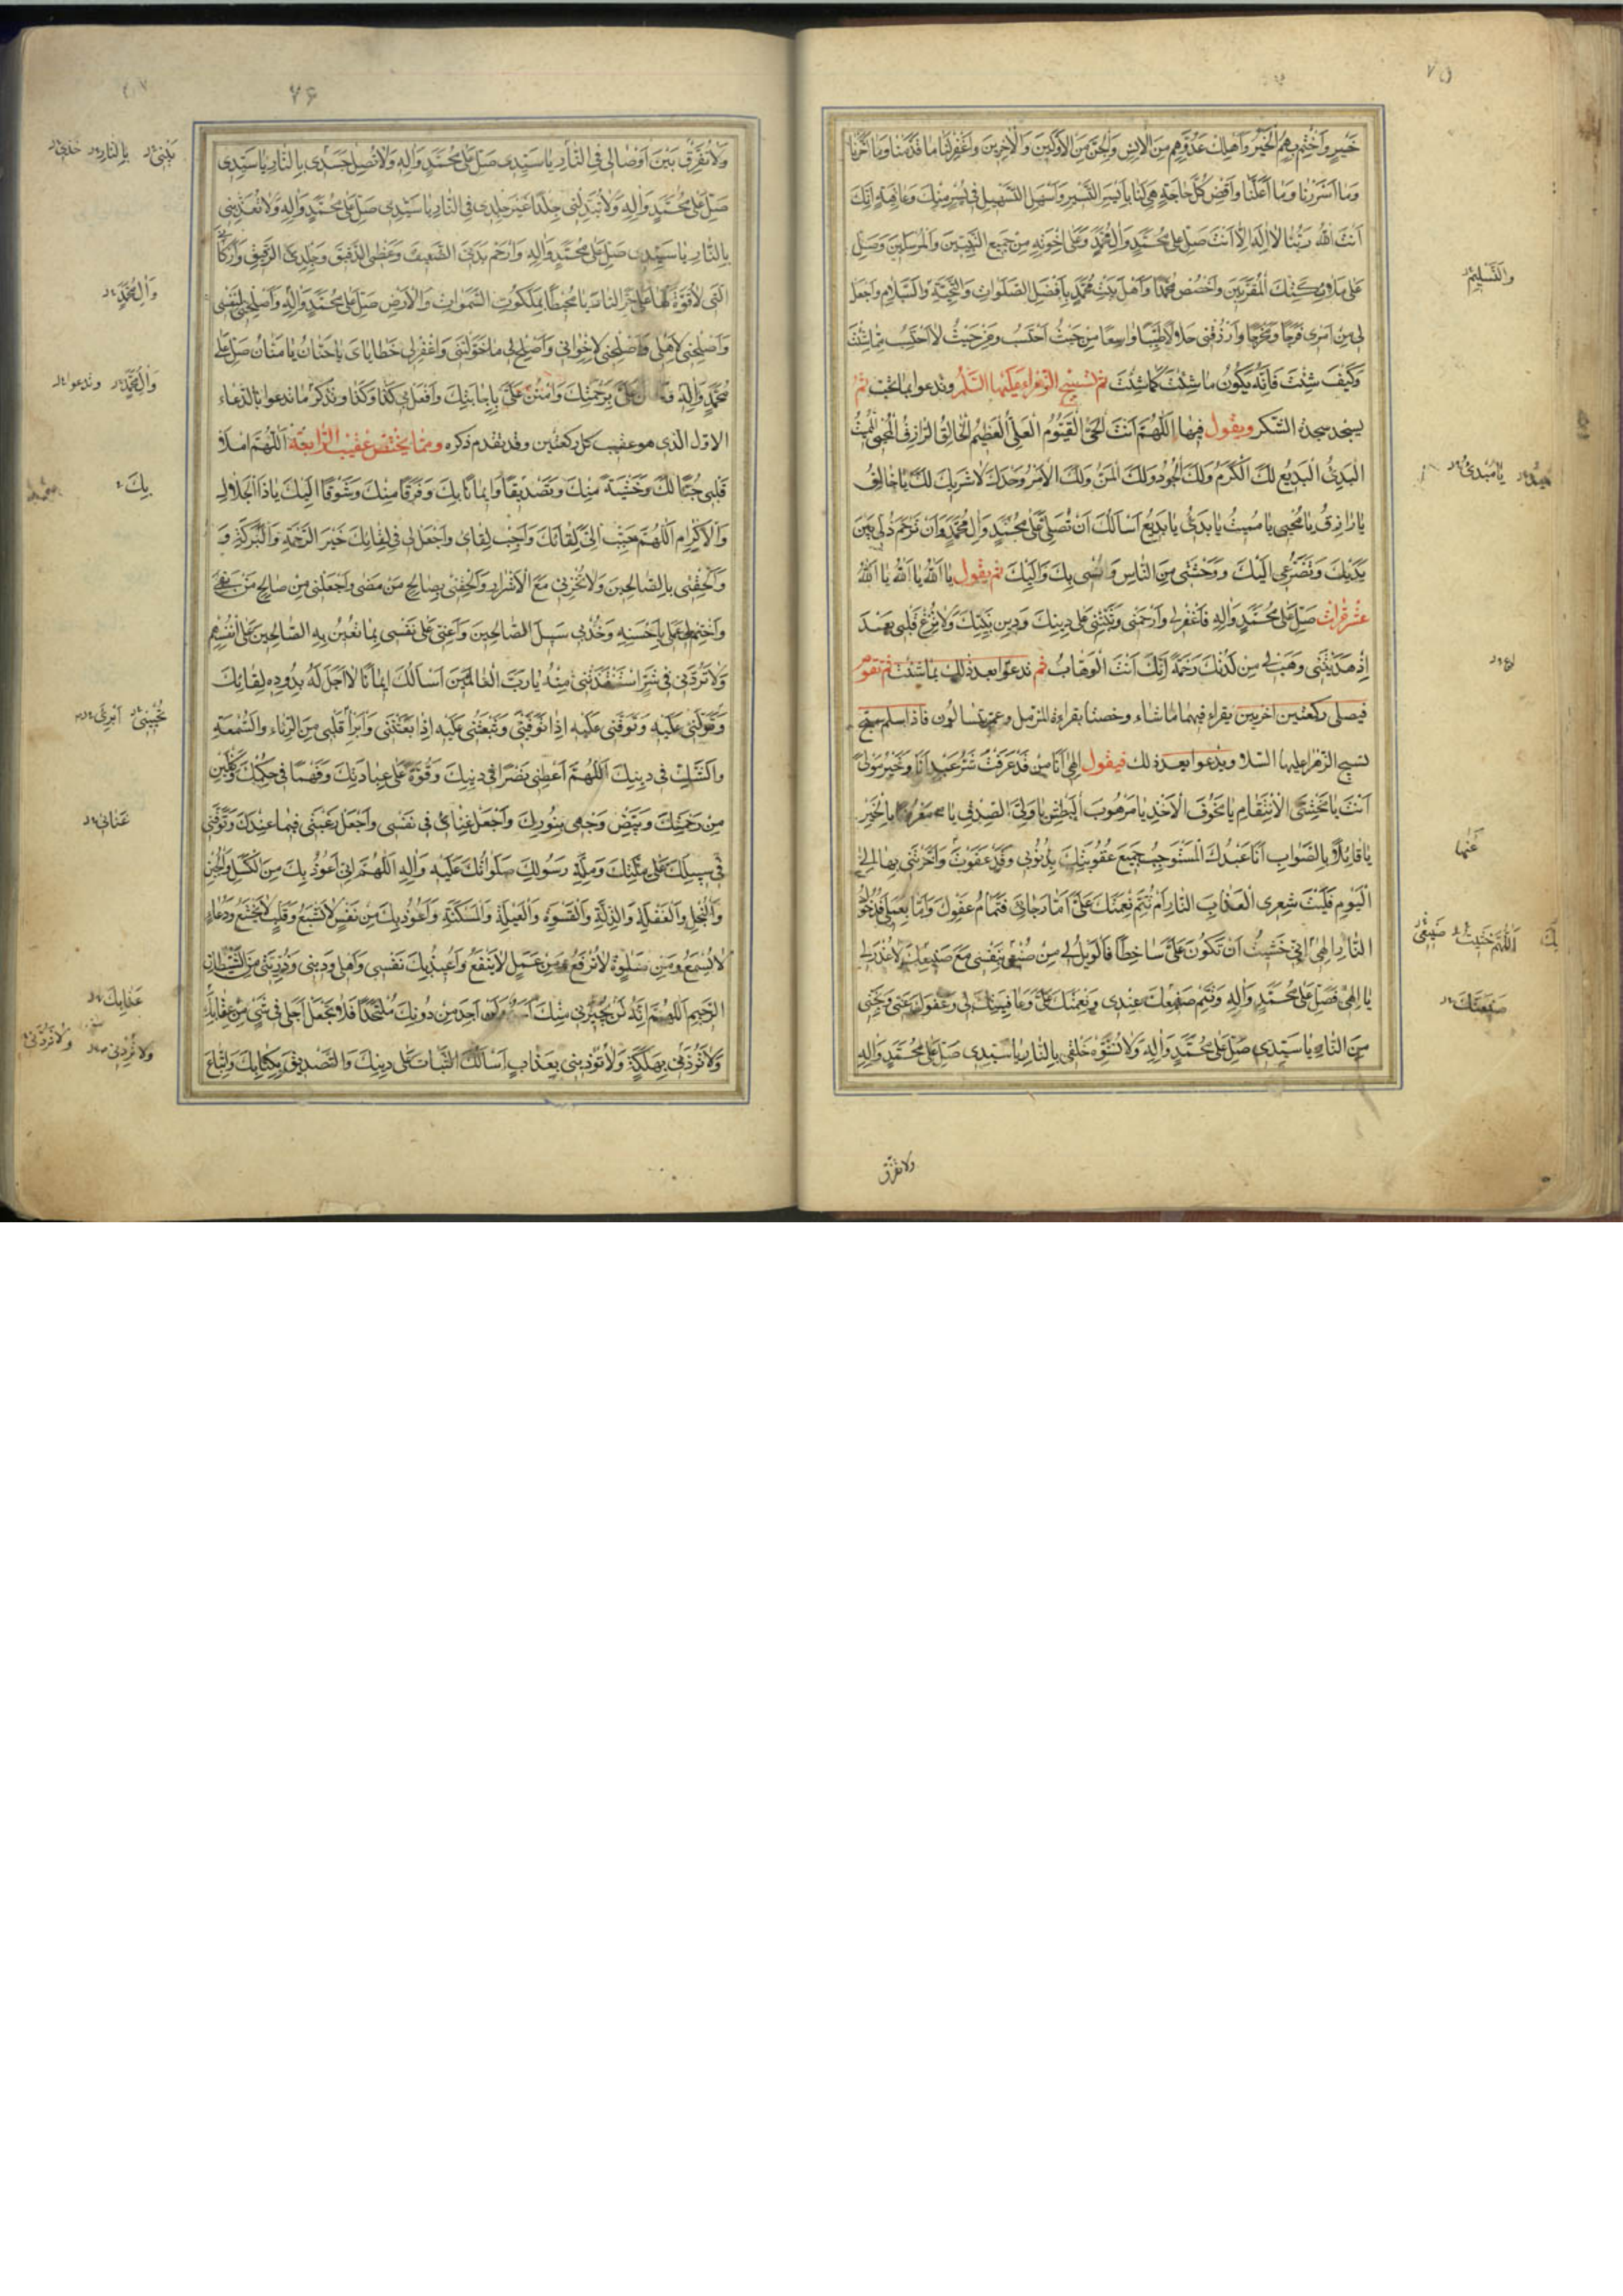 ٧٥
خَيْرٍ وَاخْتِمْ لَهُم بِخَيْرٍ وَاَهْلِكْ عَدُوَّهُمْ مِنَ الاِنْسِ وَالْجِنِّ مِنَ الاَوَّلِينَ وَالآخِرِينَ وَاغْفِرْ لَنا ما قَدَّمْنا وَما اَخَّرْنا
وَما اَسْرَرْنا وَما اَعْلَنّا وَاقْضِ كُلَّ حاجَةٍ هِيَ لَنا بِاَيْسَرِ التَّيْسِيرِ وَاَسْهَلِ التَّسْهِيلِ فِي يُسْرٍ مِنْكَ وَعافِيَةٍ اِنَّكَ
اَنْتَ اللهُ رَبُّنا لا اِلهَ اِلاّ اَنْتَ صَلِّ عَلى مُحَمَّدٍ وَآلِ مُحَمَّدٍ وَعَلى اِخْوَتِهِ مِنْ جَمِيعِ النَّبِيِّينَ وَالْمُرْسَلِينَ وَصَلِّ
عَلى مَلائِكَتِكَ الْمُقَرَّبِينَ وَاخْصُصْ مُحَمَّدًا وَاَهْلَ بَيْتِ مُحَمَّدٍ بِاَفْضَلِ الصَّلَواتِ وَالتَّحِيَّةِ وَالسَّلامِ وَاجْعَلْ
لِي مِنْ اَمْرِي فَرَجًا وَمَخْرَجًا وَارْزُقْنِي حَلالاً طَيِّبًا واسِعًا مِنْ حَيْثُ اَحْتَسِبُ وَمِنْ حَيْثُ لا اَحْتَسِبُ مِمّا شِئْتَ
وَكَيْفَ شِئْتَ فَاِنَّهُ يَكُونُ ما شِئْتَ كَما شِئْتَ ثم تسبيح الزهراء عليها السلم وتدعوا بما تحب ثم
يسجد سجدة الشكر ويقول فيها اَللّهُمَّ اَنْتَ الْحَيُّ الْقَيُّومُ الْعَلِيُّ الْعَظِيمُ الْخالِقُ الرّازِقُ الْمُحْيِي الْمُمِيتُ
الْبَدِئُ الْبَدِيعُ لَكَ الْكَرَمُ وَلَكَ الْجُودُ وَلَكَ الْمَنُّ وَلَكَ الاَمْرُ وَحْدَكَ لا شَرِيكَ لَكَ يا خالِقُ
يا رازِقُ يا مُحْيِي يا مُمِيتُ يا بَدِئُ يا بَدِيعُ اَسْاَلُكَ اَنْ تُصَلِّيَ عَلى مُحَمَّدٍ وَآلِ مُحَمَّدٍ وَاَنْ تَرْحَمَ ذُلِّي بَيْنَ
يَدَيْكَ وَتَضَرُّعِي اِلَيْكَ وَوَحْشَتِي مِنَ النّاسِ وَاُنْسِي بِكَ وَاِلَيْكَ ثم يقول يا اَللهُ يا اَللهُ يا اَللهُ
عشر مرات صَلِّ عَلى مُحَمَّدٍ وَآلِهِ فَاغْفِرْ لِي وَارْحَمْنِي وَثَبِّتْنِي عَلى دِينِكَ وَدِينِ نَبِيِّكَ وَلا تُزِغْ قَلْبِي بَعْدَ
اِذْ هَدَيْتَنِي وَهَبْ لِي مِنْ لَدُنْكَ رَحْمَةً اِنَّكَ اَنْتَ الْوَهّابُ ثم تدعوا بعد ذلك بما شئت ثم تقوم
فيصلي ركعتين اخريين يقراء فيهما ما شاء وخصتا بقراءة المزمل وعم يتسالون فاذا سلم سبح
تسبيح الزهراء عليها السلا ويدعوا بعد ذلك فيقول اِلهِي اَنَا مَنْ قَدْ عَرَفْتَ شَرُّ عَبْدٍ اَنَا وَخَيْرُ مَوْلىً
اَنْتَ يا مَخْشِيَّ الاِنْتِقامِ يا مَخُوفَ الاَخْذِ يا مَرْهُوبَ الْبَطْشِ يا وَلِيَّ الصِّدْقِ يا مَعْرُوفًا بِالْخَيْرِ
يا قائِلاً بِالصَّوابِ اَنَا عَبْدُكَ الْمُسْتَوْجِبُ جَمِيعَ عُقُوبَتِكَ بِذُنُوبِي وَقَدْ عَفَوْتَ وَاَخَّرْتَنِي بِها اِلَى
الْيَوْمِ فَلَيْتَ شِعْرِي اَلِعَذابِ النّارِ اَمْ تُتِمُّ نِعْمَتَكَ عَلَيَّ اَمّا رَجائِي فَتَمامُ عَفْوِكَ وَاَمّا بِعَمَلِي فَدُخُولُ
النّارِ اِلهِي اِنِّي خَشِيتُ اَنْ تَكُونَ عَلَيَّ ساخِطًا فَالْوَيْلُ لِي مِنْ صُنْعِي بِنَفْسِي مَعَ صَنِيعِكَ لا عُذْرَ لِي
يا اِلهِي فَصَلِّ عَلى مُحَمَّدٍ وَآلِهِ وَتَمِّمْ صَنِيعَكَ عِنْدِي وَنِعْمَتَكَ عَلَيَّ وَعافِيَتَكَ لِي وَعَفْوَكَ عَنِّي وَنَجِّنِي
مِنَ النّارِ يا سَيِّدِي صَلِّ عَلى مُحَمَّدٍ وَآلِهِ وَلا تُشَوِّهْ خَلْقِي بِالنّارِ يا سَيِّدِي صَلِّ عَلى مُحَمَّدٍ وَآلِهِ
ولا تفرق
وَالتَّسْلِيمِ
يا مُبْدِئُ
عَنْها
اَللّهُمَّ
صَنِيعَتَكَ
٧۶
وَلا تُفَرِّقْ بَيْنَ اَوْصالِي فِي النّارِ يا سَيِّدِي صَلِّ عَلى مُحَمَّدٍ وَآلِهِ وَلا تُصْلِ جَسَدِي بِالنّارِ يا سَيِّدِي
صَلِّ عَلى مُحَمَّدٍ وَآلِهِ وَلا تُبَدِّلْنِي جِلْدًا غَيْرَ جِلْدِي فِي النّارِ يا سَيِّدِي صَلِّ عَلى مُحَمَّدٍ وَآلِهِ وَلا تُعَذِّبْنِي
بِالنّارِ يا سَيِّدِي صَلِّ عَلى مُحَمَّدٍ وَآلِهِ وَارْحَمْ بَدَنِيَ الضَّعِيفَ وَعَظْمِيَ الدَّقِيقَ وَجِلْدِيَ الرَّقِيقَ وَاَرْكانِيَ
الَّتِي لا قُوَّةَ لَها عَلى حَرِّ النّارِ يا مُحِيطًا بِمَلَكُوتِ السَّمواتِ وَالاَرْضِ صَلِّ عَلى مُحَمَّدٍ وَآلِهِ وَاَصْلِحْنِي لِنَفْسِي
وَاَصْلِحْنِي لاَهْلِي وَاَصْلِحْنِي لاِخْوانِي وَاَصْلِحْ لِي ما خَوَّلْتَنِي وَاغْفِرْ لِي خَطايايَ يا حَنّانُ يا مَنّانُ صَلِّ عَلى
مُحَمَّدٍ وَآلِهِ عَلَيَّ بِرَحْمَتِكَ وَامْنُنْ عَلَيَّ بِاِجابَتِكَ وَافْعَلْ بِي كَذا وَكَذا وتذكر ما تدعوا بالدعاء
الاول الذي هو عقيب كل ركعتين وقد يقدم ذكره ومما يختص عقيب الرابعة اَللّهُمَّ امْلاَ
قَلْبِي حُبًّا لَكَ وَخَشْيَةً مِنْكَ وَتَصْدِيقًا وَاِيمانًا بِكَ وَفَرَقًا مِنْكَ وَشَوْقًا اِلَيْكَ يا ذَا الْجَلالِ
وَالاِكْرامِ اَللّهُمَّ حَبِّبْ اِلَيَّ لِقائَكَ وَاَحْبِبْ لِقائِي وَاجْعَلْ لِي فِي لِقائِكَ خَيْرَ الرَّحْمَةِ وَالْبَرَكَةِ وَ
وَاَلْحِقْنِي بِالصّالِحِينَ وَلا تُخْزِنِي مَعَ الاَشْرارِ وَاَلْحِقْنِي بِصالِحِ مَنْ مَضى وَاجْعَلْنِي مِنْ صالِحِ مَنْ بَقِيَ
وَاخْتِمْ لِي عَمَلِي بِاَحْسَنِهِ وَخُذْ بِي سَبِيلَ الصّالِحِينَ وَاَعِنِّي عَلى نَفْسِي بِما تُعِينُ بِهِ الصّالِحِينَ عَلى اَنْفُسِهِمْ
وَلا تَرُدَّنِي فِي شَرٍّ اسْتَنْقَذْتَنِي مِنْهُ يا رَبَّ الْعالَمِينَ اَسْاَلُكَ اِيمانًا لا اَجَلَ لَهُ بِدُونِ لِقائِكَ
وَتَوَلَّنِي عَلَيْهِ وَتَوَفَّنِي عَلَيْهِ اِذا تَوَفَّيْتَنِي وَتَبْعَثُنِي عَلَيْهِ اِذا بَعَثْتَنِي وَاَبْرِأْ قَلْبِي مِنَ الرِّياءِ وَالسُّمْعَةِ
وَالشَّكِّ فِي دِينِكَ اَللّهُمَّ اَعْطِنِي نَصْرًا فِي دِينِكَ وَقُوَّةً عَلى عِبادَتِكَ وَفَهْمًا فِي حُكْمِكَ وَكِفْلَيْنِ
مِنْ رَحْمَتِكَ وَبَيِّضْ وَجْهِي بِنُورِكَ وَاجْعَلْ غِنايَ فِي نَفْسِي وَاجْعَلْ رَغْبَتِي فِيما عِنْدَكَ وَتَوَفَّنِي
فِي سَبِيلِكَ عَلى مِلَّتِكَ وَمِلَّةِ رَسُولِكَ صَلَواتُكَ عَلَيْهِ وَآلِهِ اَللّهُمَّ اِنِّي اَعُوذُ بِكَ مِنَ الْكَسَلِ وَالْجُبْنِ
وَالْبُخْلِ وَالْغَفْلَةِ وَالذِّلَّةِ وَالْقَسْوَةِ وَالْعَيْلَةِ وَالْمَسْكَنَةِ وَاَعُوذُ بِكَ مِنْ نَفْسٍ لا تَشْبَعُ وَقَلْبٍ لا يَخْشَعُ وَدُعاءٍ
لا يُسْمَعُ وَمِنْ صَلوةٍ لا تُرْفَعُ وَمِنْ عَمَلٍ لا يَنْفَعُ وَاُعِيذُ بِكَ نَفْسِي وَاَهْلِي وَدِينِي وَذُرِّيَّتِي مِنَ الشَّيْطانِ
الرَّجِيمِ اَللّهُمَّ اِنَّهُ لَنْ يُجِيرَنِي مِنْكَ اَحَدٌ وَلَنْ اَجِدَ مِنْ دُونِكَ مُلْتَحَدًا فَلا تَجْعَلْ اَجَلِي فِي شَيْءٍ مِنْ عِقابِكَ
وَلا تَرُدَّنِي بِهَلَكَةٍ وَلا تَرُدَّنِي بِعَذابٍ اَسْاَلُكَ الثَّباتَ عَلى دِينِكَ وَالتَّصْدِيقَ بِكِتابِكَ وَاتِّباعَ
بِالنّارِ
وَآلِ مُحَمَّدٍ
وَآلِ مُحَمَّدٍ وتدعوا
بِكَ
غَنائِي
عَذابِكَ
وَلا تُرْدِنِي وَلا تَرُدَّنِي